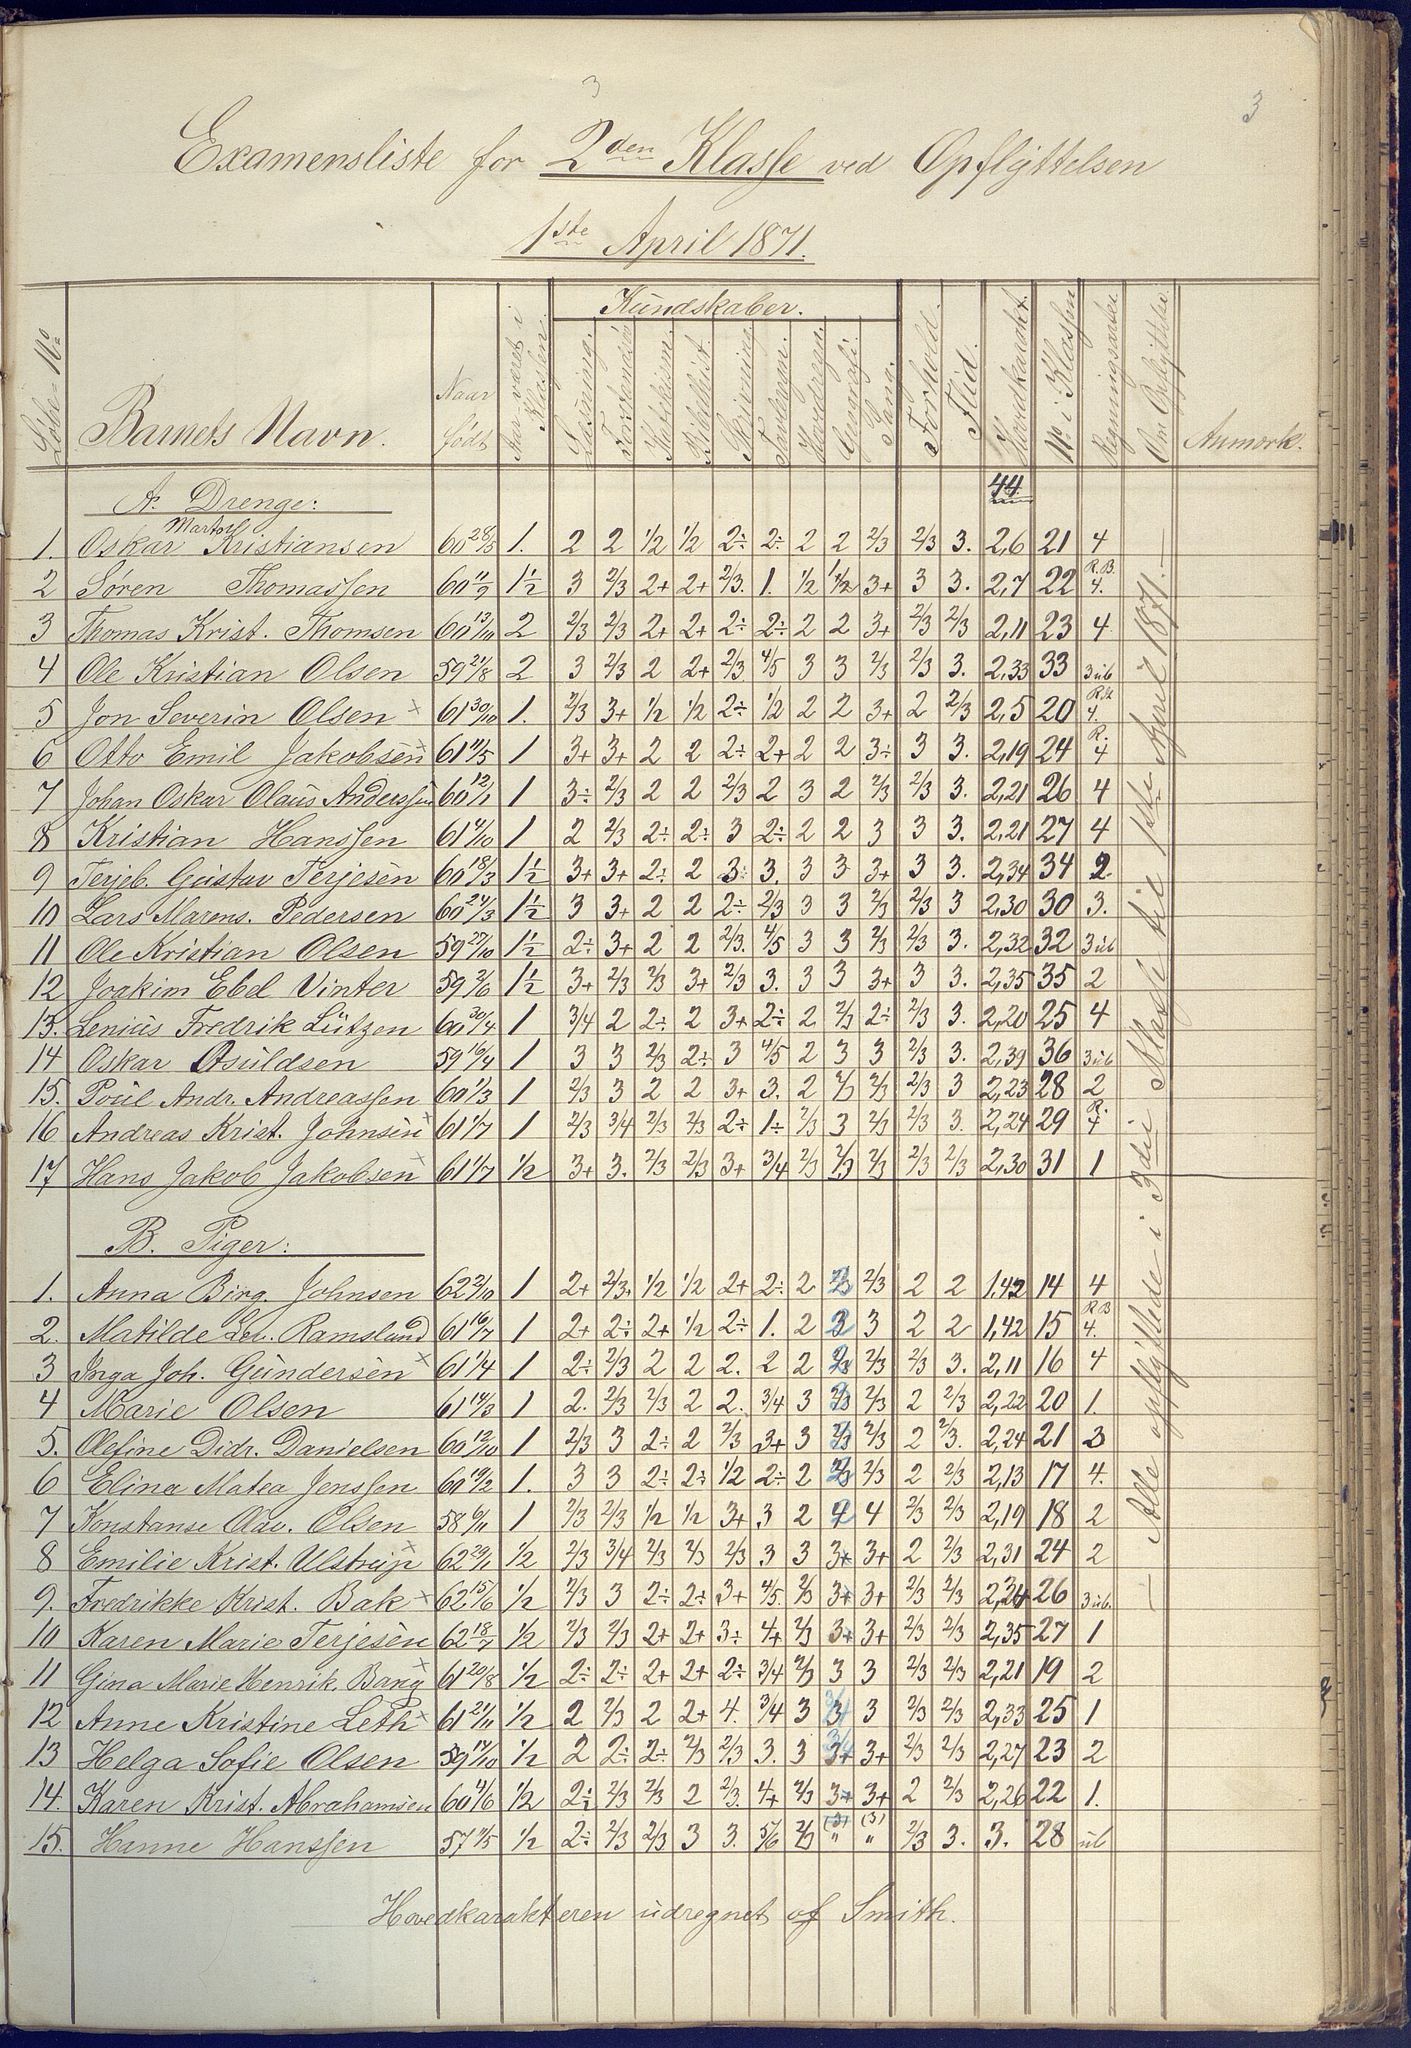 3
3
Examensliste for 2den Klasse ved Opflyttelsen
1ste April 1871.
Løbe=No Barnets Navn. Naar født Aar været i Klassen. Kundskaber. Læsning. Forstandsø. Katekism. Bibelhist. Skrivning. Tavleregn. Hovedregn. Sang. Forhold. Flid. Hovedkarakt. No i Klassen Om Opflyttelse. Anmærk.
A. Drenge: 44
1. Oskar Martin Kristiansen 60 28/5 1. 2 2 1/2 1/2 2÷ 2÷ 2 2 2/3 2/3 3. 2,6 21 4
2 Søren Thomassen 60 11/9 1½ 3 2/3 2+ 2+ 2/3. 1. 1/2 1½ 3+ 3 3. 2,7 22 R.B. 4.
3 Thomas Krist. Thomsen 60 13/10 2 2/3 2/3 2+ 2+ 2÷ 2÷ 2 2 3+ 2/3 2/3 2,11 23 4
4 Ole Kristian Olsen 59 21/8 2 3 2/3 2 2+ 2/3. 4/5 3 3 2/3 2/3 3. 2,33 33 3 ub
5 Jon Severin Olsen × 61 30/10 1. 2/3 3+ 1/2 1/2 2÷ 1/2 2 2 3+ 2 2/3 2,5 20 4.
6 Otto Emil Jakobsen × 61 11/5 1 3+ 3+ 2 2 2÷ 2+ 2 2 3÷ 3 3. 2,19 24 R. 4
7 Johan Oskar Olaus Anderssen 60 12/1 1 3÷ 2/3 2 2 2/3 2 3 2 2/3 2/3 3. 2,21 26 4
8 Kristian Hanssen 61 4/10 1 2 2/3 2÷ 2÷ 3 2÷ 2 2 3 3 3. 2,21 27 4
9 Terjeb. Gustav Terjesen 60 18/3 1½ 3+ 3+ 2÷ 2 3÷ 3. 3 3 3+ 3 3. 2,34 34 2.
10 Lars Marens. Pedersen 60 24/3 1½ 3 3+ 2 2 2÷ 2/3 3 3 2/3 2/3 3 2,30 30 3.
11 Ole Kristian Olsen 59 27/10 1½ 2÷ 3+ 2 2 2/3. 4/5 3 3 2/3 2/3 3. 2,32 32 3 ub
12 Joakim Ebel Vinter 59 2/6 1½ 3+ 2/3 2/3 3+ 2/3 3. 3 3 3+ 3 3. 2,35 35 2
13. Lenius Fredrik Lützen 60 30/4 1 3/4 2 2÷ 2 3+ 2÷ 2 2/3 2÷ 2/3 3. 2,20 25 4
14 Oskar Osuldsen 59 16/4 1 3 3 2/3 2÷ 3 4/5 2 3 3 2/3 3. 2,39 36 3 ub
15. Poul Andr. Andreassen 60 1/3 1 2/3 3 2 2 3+ 3. 2 2/3 2/3 2/3 3 2,23 28 2
16 Andreas Krist. Johnsen × 61 1/7 1 2/3 3/4 2/3 2/3 2÷ 1÷ 2/3 3 2/3 2/3 3. 2,24 29 R. 4
17 Hans Jakob Jakobsen × 61 1/7 1/2 3+ 3. 2/3 2/3 3+ 3/4 2/3 2/3 2/3 2/3 2/3 2,30 31 1
B. Piger:
1. Anna Birg. Johnsen 62 2/10 1 2+ 2/3. 1/2 1/2 2+ 2÷ 2 2/3 2/3 2 2 1,42 14 4
2. Matilde Ramslund 61 16/7 1 2+ 2÷ 2+ 1/2 2÷ 1. 2 3 3 2 2 1,42 15 R B 4.
3 Inga Joh. Gundersen × 61 1/4 1 2÷ 2/3 2 2 2. 2 2 2/3 2/3 2/3 3. 2,11 16 4
4 Marie Olsen 61 14/3 1 2. 2/3 2/3 2 2. 3/4 3 2/3 2/3 2 2/3 2,22 20 1.
5. Olefine Didr. Danielsen 60 12/10 1 2/3 3 2÷ 2 2/3 3+ 3 2/3 2/3 2 2/3. 2,24 21 3
6 Elina Matea Jenssen 60 19/2 1. 3 3 2÷ 2÷ 1/2 2÷ 2 2/3 2/3 2 2/3 2,13 17 4.
7 Konstanse Olsen 58 6/11 1 2/3 2/3 1/2 1/2 3+ 3 2 4 4 2/3 2/3 2,19 18 2
8 Emilie Krist. Ulstrup × 62 29/11 1/2 2/3 3/4 2/3 2/3 2/3 3 3 3+ 3+ 2 2/3 2,31 24 2
9. Fredrikke Krist. Bak × 62 15/6 1/2 2/3 3 2÷ 2÷ 3+ 4/5. 2/3 3+ 3+ 2/3 2/3 2,34 26 3 ub.
10 Karen Marie Terjesen 62 18/7 1/2 2/3 2/3 2+ 2+ 3÷ 4+ 2/3 3+ 3+ 2/3 2/3 2,35 27 1
11 Gina Marie Henrik. Bang × 61 20/8 1/2 2÷ 2÷ 2+ 2+ 2÷ 3/4 2/3 3 3 2/3 2/3 2,21 19 2
12 Anne Kristine Leth × 61 21/11 1/2 2 2/3 2 2+ 4. 3/4 3 3 3 2/3 2/3 2,33 25 1
13 Helga Sofie Olsen 59 14/10 1/2 2 2÷ 2÷ 2/3 2/3 3. 3 3+ 3+ 2/3 2/3 2,27 23 2
14. Karen Krist. Abrahamsen 60 4/6 1/2 2÷ 2/3 2/3 2 2/3. 4+ 2/3 3+ 3+ 2 2/3 2,26 22 1.
15. Hanne Hanssen 57 11/5 1/2 2÷ 2/3 2/3 3 3. 5/6 2/3 (3) " (3) " 2/3 3. 3. 28 ub
— Alle opflyttede i 3die Klasse til 1ste April 1871. —
Hovedkarakteren udregnet af Smith.